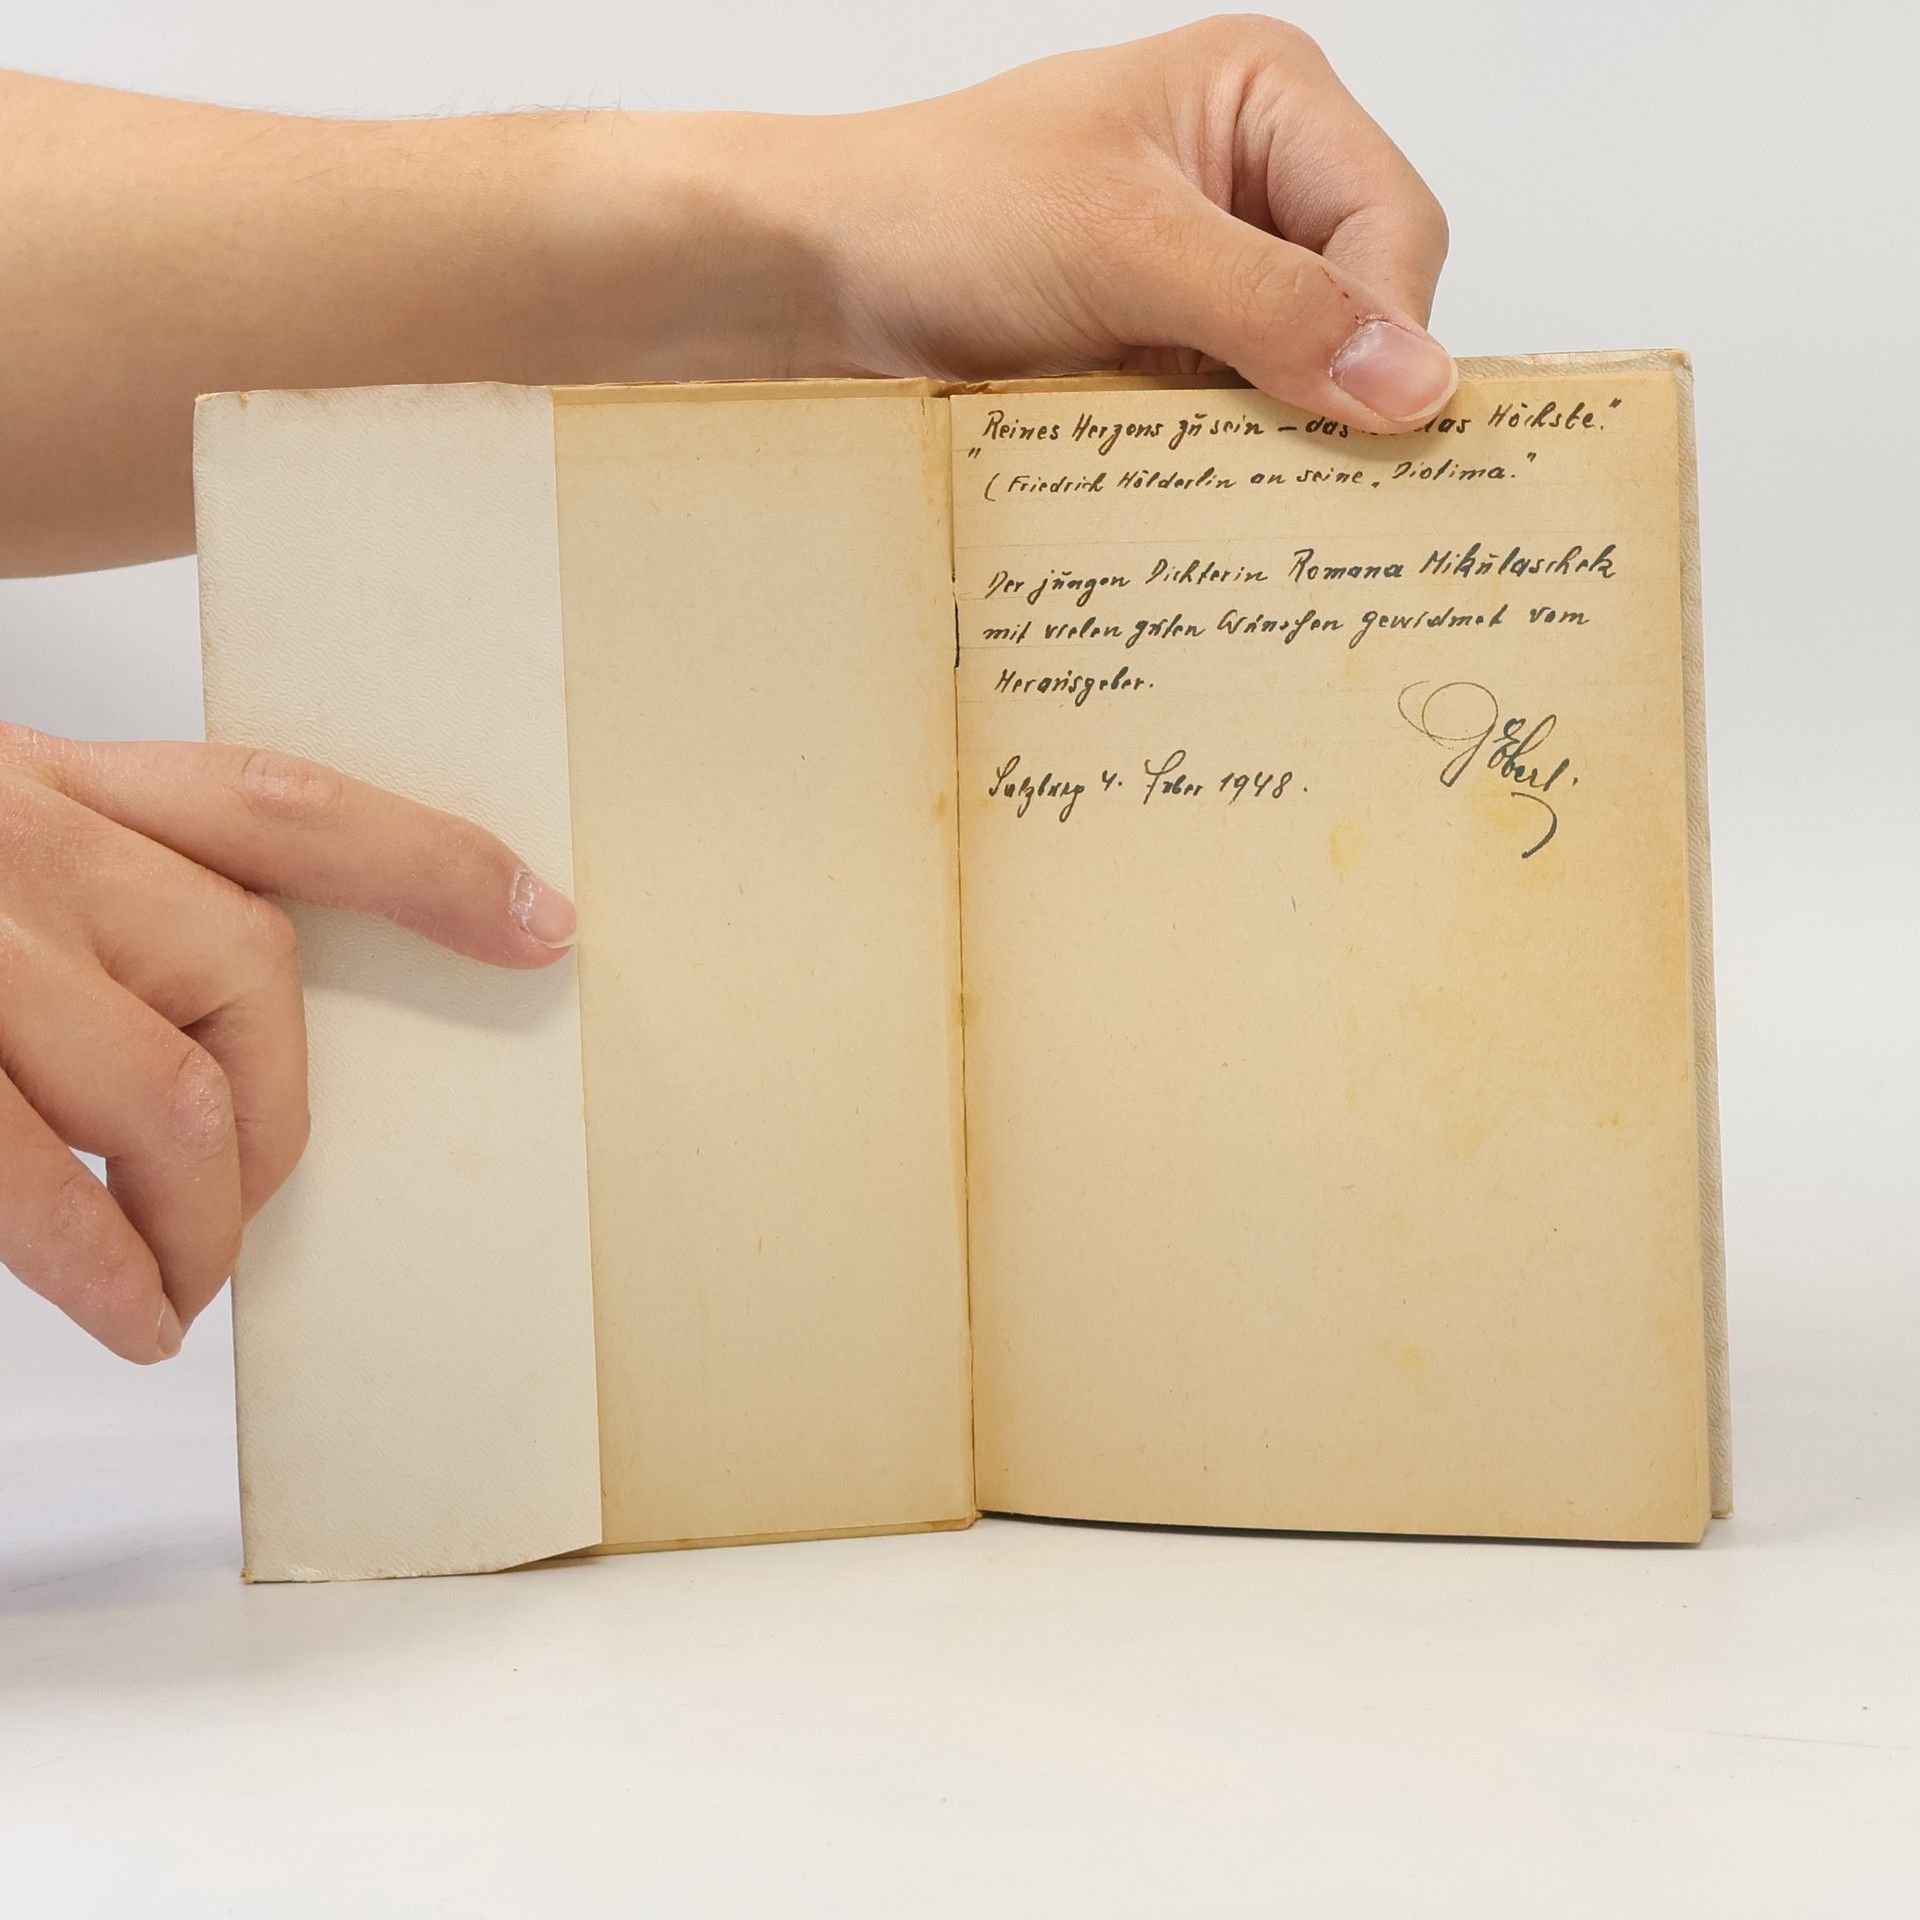 „Reines Herzens zu sein – das das Höchste."
(Friedrich Hölderlin an seine „Diotima."
Der jungen Dichterin Romana Mikulaschek
mit vielen guten Wünschen gewidmet vom
Herausgeber.
GEberl.
Salzburg 4. 1948.